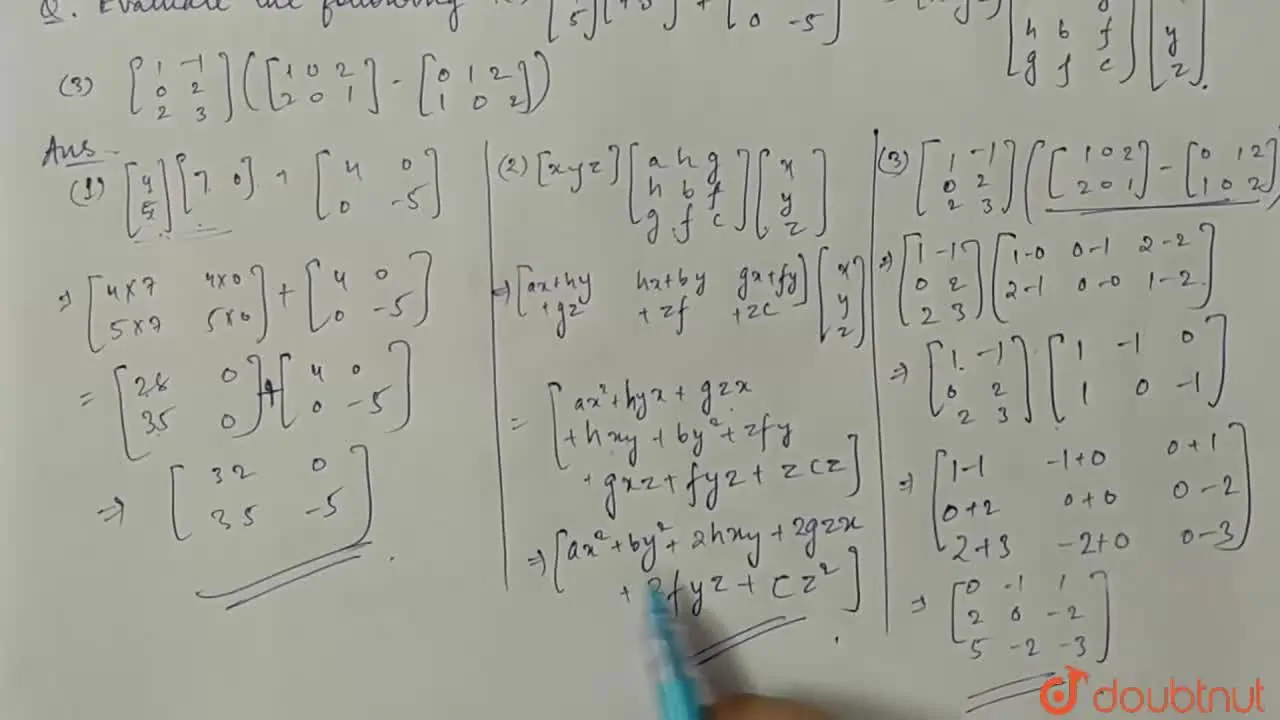 Q. Evaluate the following
5] [7 0] + [ 0 -5]
[h b f
g f c] [y
z].
(3) [1 -1
0 2
2 3] ([1 0 2
2 0 1] - [0 1 2
1 0 2])
Ans -
(1) [4
5] [7 0] + [4 0
0 -5]
⇒ [4×7 4×0
5×7 5×0] + [4 0
0 -5]
= [28 0
35 0] + [4 0
0 -5]
⇒ [32 0
35 -5]
(2) [x y z] [a h g
h b f
g f c] [x
y
z]
⇒ [ax+hy hx+by gx+fy
+gz +zf +zc] [x
y
z]
= [ax²+hyx+gzx
+hxy+by²+zfy
+gxz+fyz+zcz]
⇒ [ax²+by²+2hxy+2gzx
+2fyz+cz²]
(3) [1 -1
0 2
2 3] ([1 0 2
2 0 1] - [0 1 2
1 0 2])
⇒ [1 -1
0 2
2 3] [1-0 0-1 2-2
2-1 0-0 1-2]
⇒ [1 -1
0 2
2 3] [1 -1 0
1 0 -1]
⇒ [1-1 -1+0 0+1
0+2 0+0 0-2
2+3 -2+0 0-3]
⇒ [0 -1 1
2 0 -2
5 -2 -3]
doubtnut